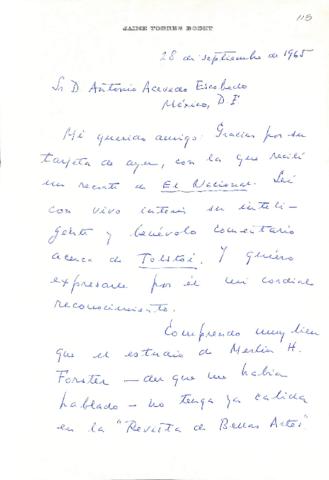 115
JAIME TORRES BODET
28 de septiembre de 1965
Sr. D. Antonio Acevedo Escobedo
México, D. F.
Mi querido amigo: Gracias por su
tarjeta de ayer, con la que recibí
un recorte de El Nacional. Leí
con vivo interés su inteli-
gente y benévolo comentario
acerca de Tolstoi. Y quiero
expresarle por él mi cordial
reconocimiento.
Comprendo muy bien
que el estudio de Merlin H.
Forster — del que me habían
hablado — no tenga ya cabida
en la "Revista de Bellas Artes"